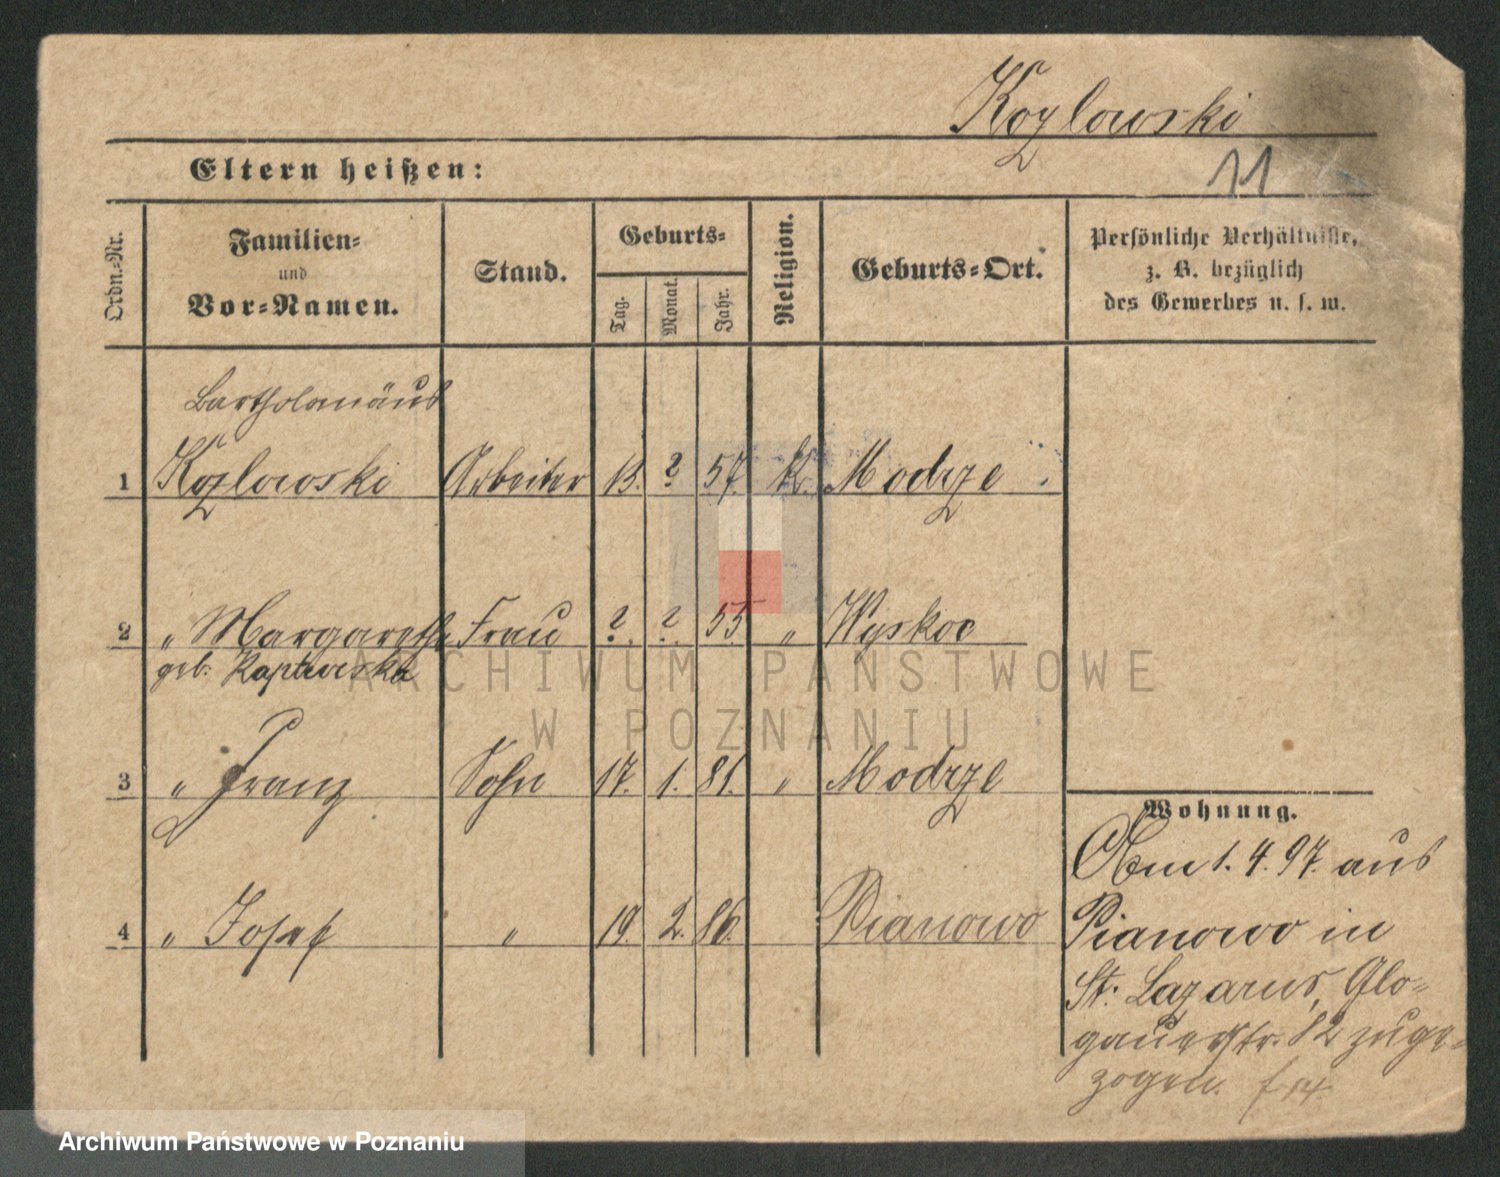 Kozlowski
Eltern heißen:
11
Ordn.-Nr.
Familien-
und
Vor-Namen.
Stand.
Geburts-
Tag.
Monat.
Jahr.
Religion.
Geburts-Ort.
Persönliche Verhältnisse,
z. B. bezüglich
des Gewerbes u. s. w.
Bartholomäus
1 Kozlowski Arbeiter 13. ? 57. k. Modrze
2 " Margarethe Frau ?. ?. 55 " Wyskoc
geb.
3 " Franz Sohn 17. 1. 81. " Modrze
4 " Josef " 19. 2. 86. Pianowo
Wohnung.
Am 1.4.97. aus
Pianowo in
St. Lazarus, Glo-
gauerstr. 82 zuge-
zogen.
ARCHIWUM PAŃSTWOWE
W POZNANIU
Archiwum Państwowe w Poznaniu